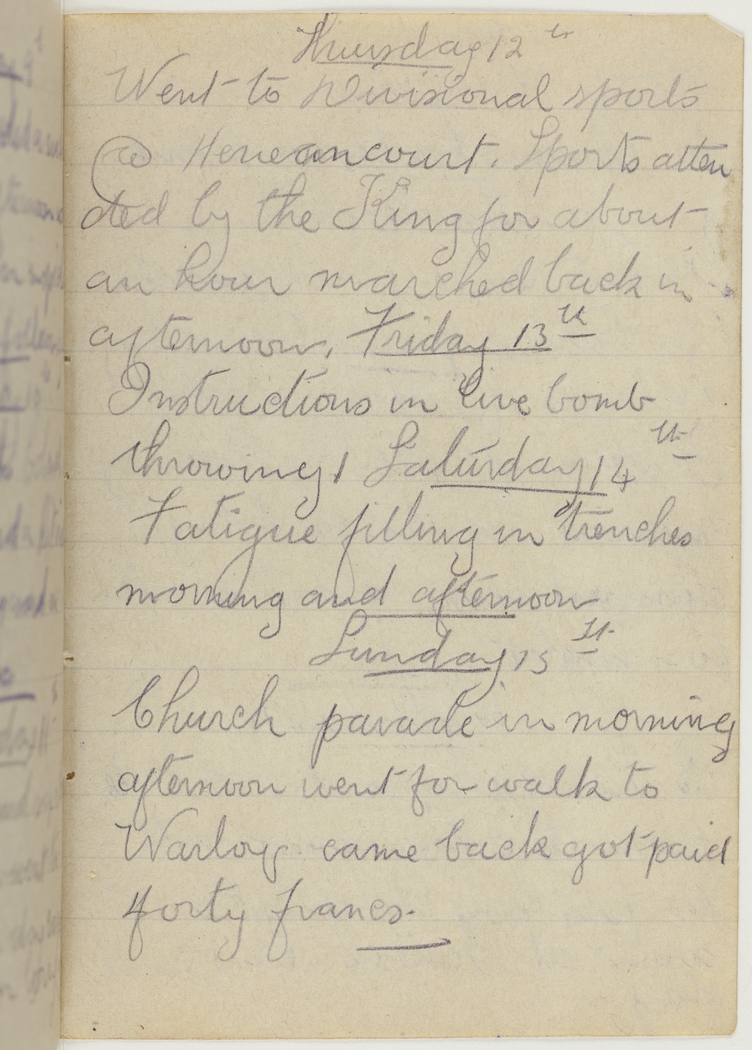 Thursday 12th
Went to Divisional sports
@ Heneancourt. Sports atten
ded by the King for about
an hour marched back in
afternoon. Friday 13th
Instructions in live bomb
throwing, Saturday 14th
Fatigue filling in trenches
morning and afternoon
Sunday 15th
Church parade in morning
afternoon went for walk to
Warloy came back got paid
forty francs.